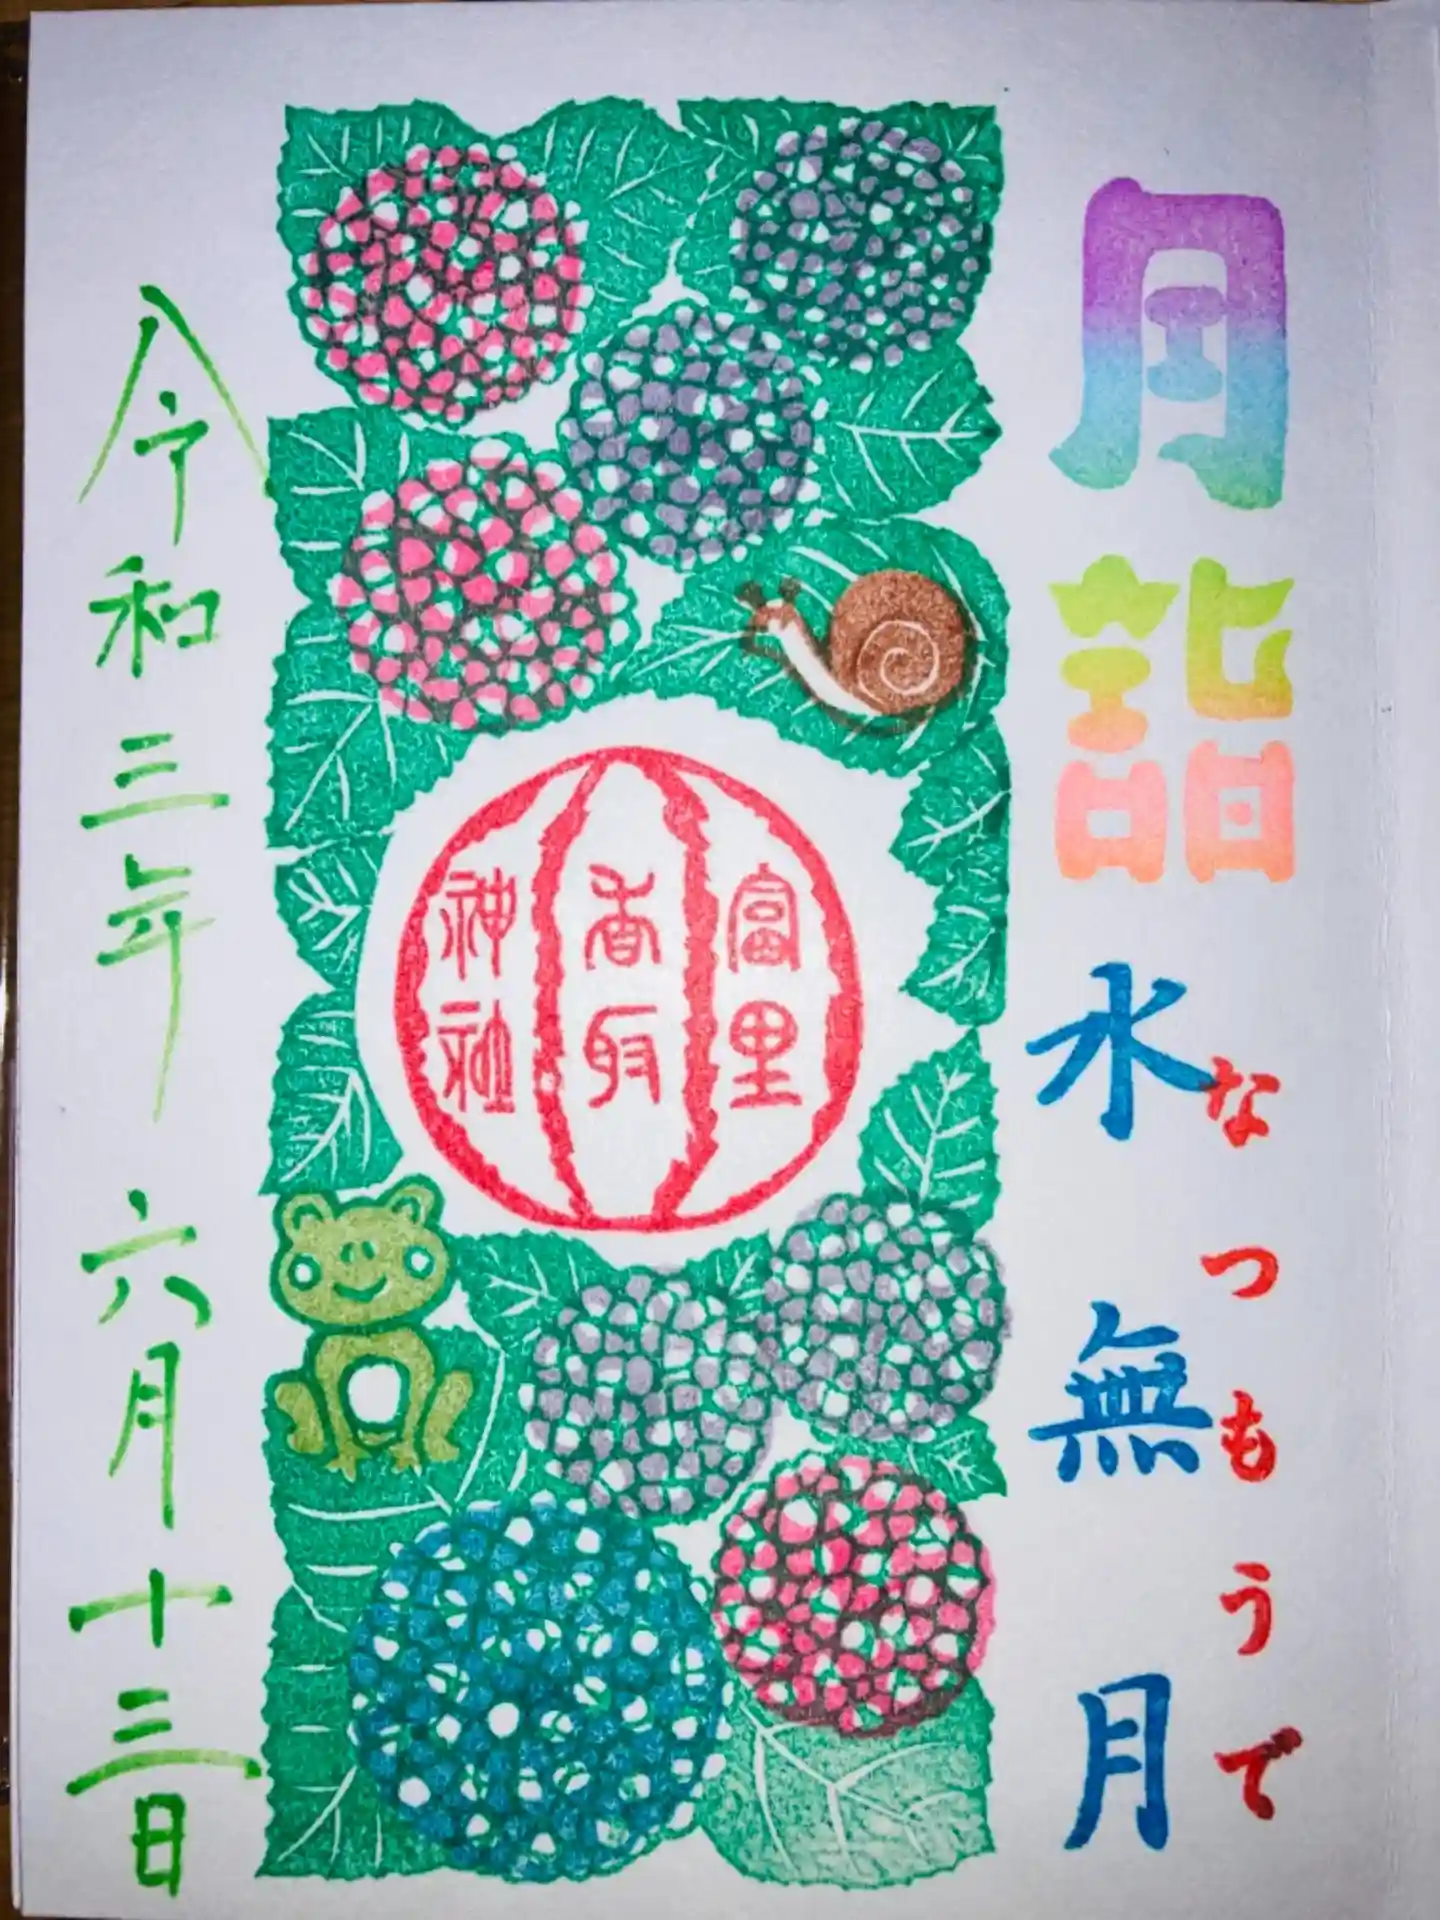 月詣
水無月
なつもうで
富里
香取
神社
令和三年六月十三日